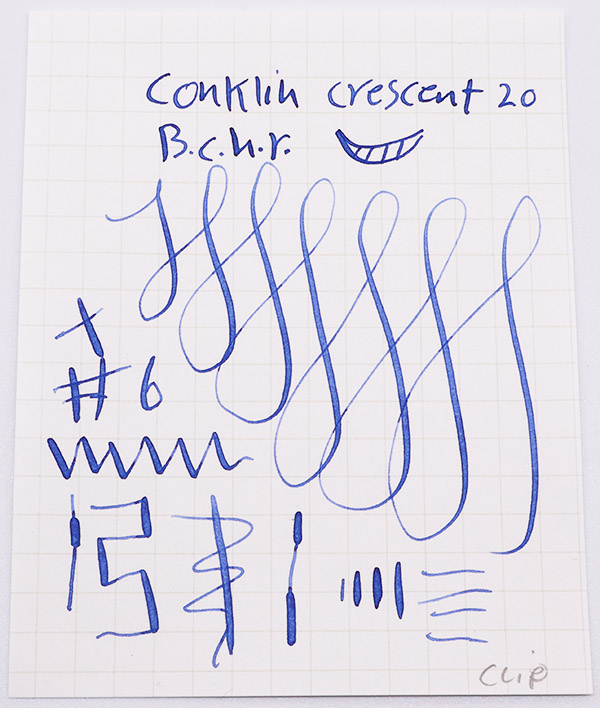 Conklin crescent 20
B.c.h.r.
#6
Clip